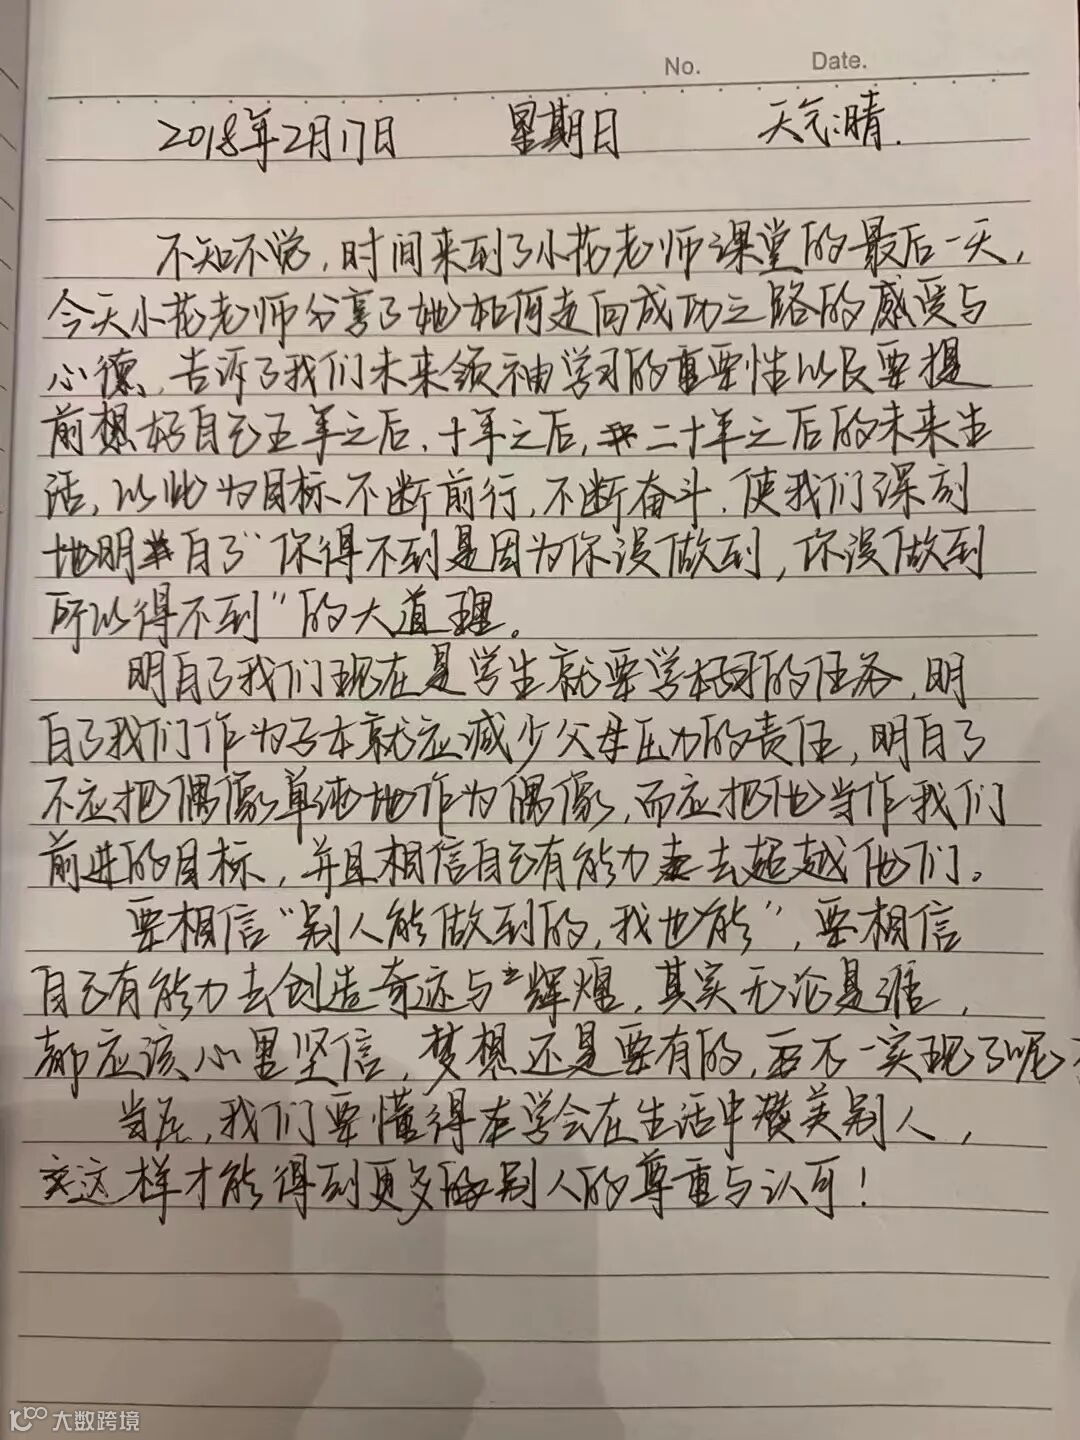 No. Date.
2018年2月17日 星期日 天气:晴.
不知不觉,时间来到了小花老师课堂的最后一天,
今天小花老师分享了她如何走向成功之路的感受与
心德,告诉了我们未来领袖学习的重要性以及要提
前想好自己五年之后,十年之后,二十年之后的未来生
活,以此为目标不断前行,不断奋斗,使我们深刻
地明白了“你得不到是因为你没做到,你没做到
所以得不到”的大道理。
明白了我们现在是学生就要学好习的任务,明
白了我们作为子女就应减少父母压力的责任,明白了
不应把偶像单纯地作为偶像,而应把他当作我们
前进的目标,并且相信自己有能力去超越他们。
要相信“别人能做到的,我也能”,要相信
自己有能力去创造奇迹与辉煌,其实无论是谁,
都应该心里坚信,梦想还是要有的,万一实现了呢
当然,我们要懂得学会在生活中赞美别人,
这样才能得到更多别人的尊重与认可!
大数跨境